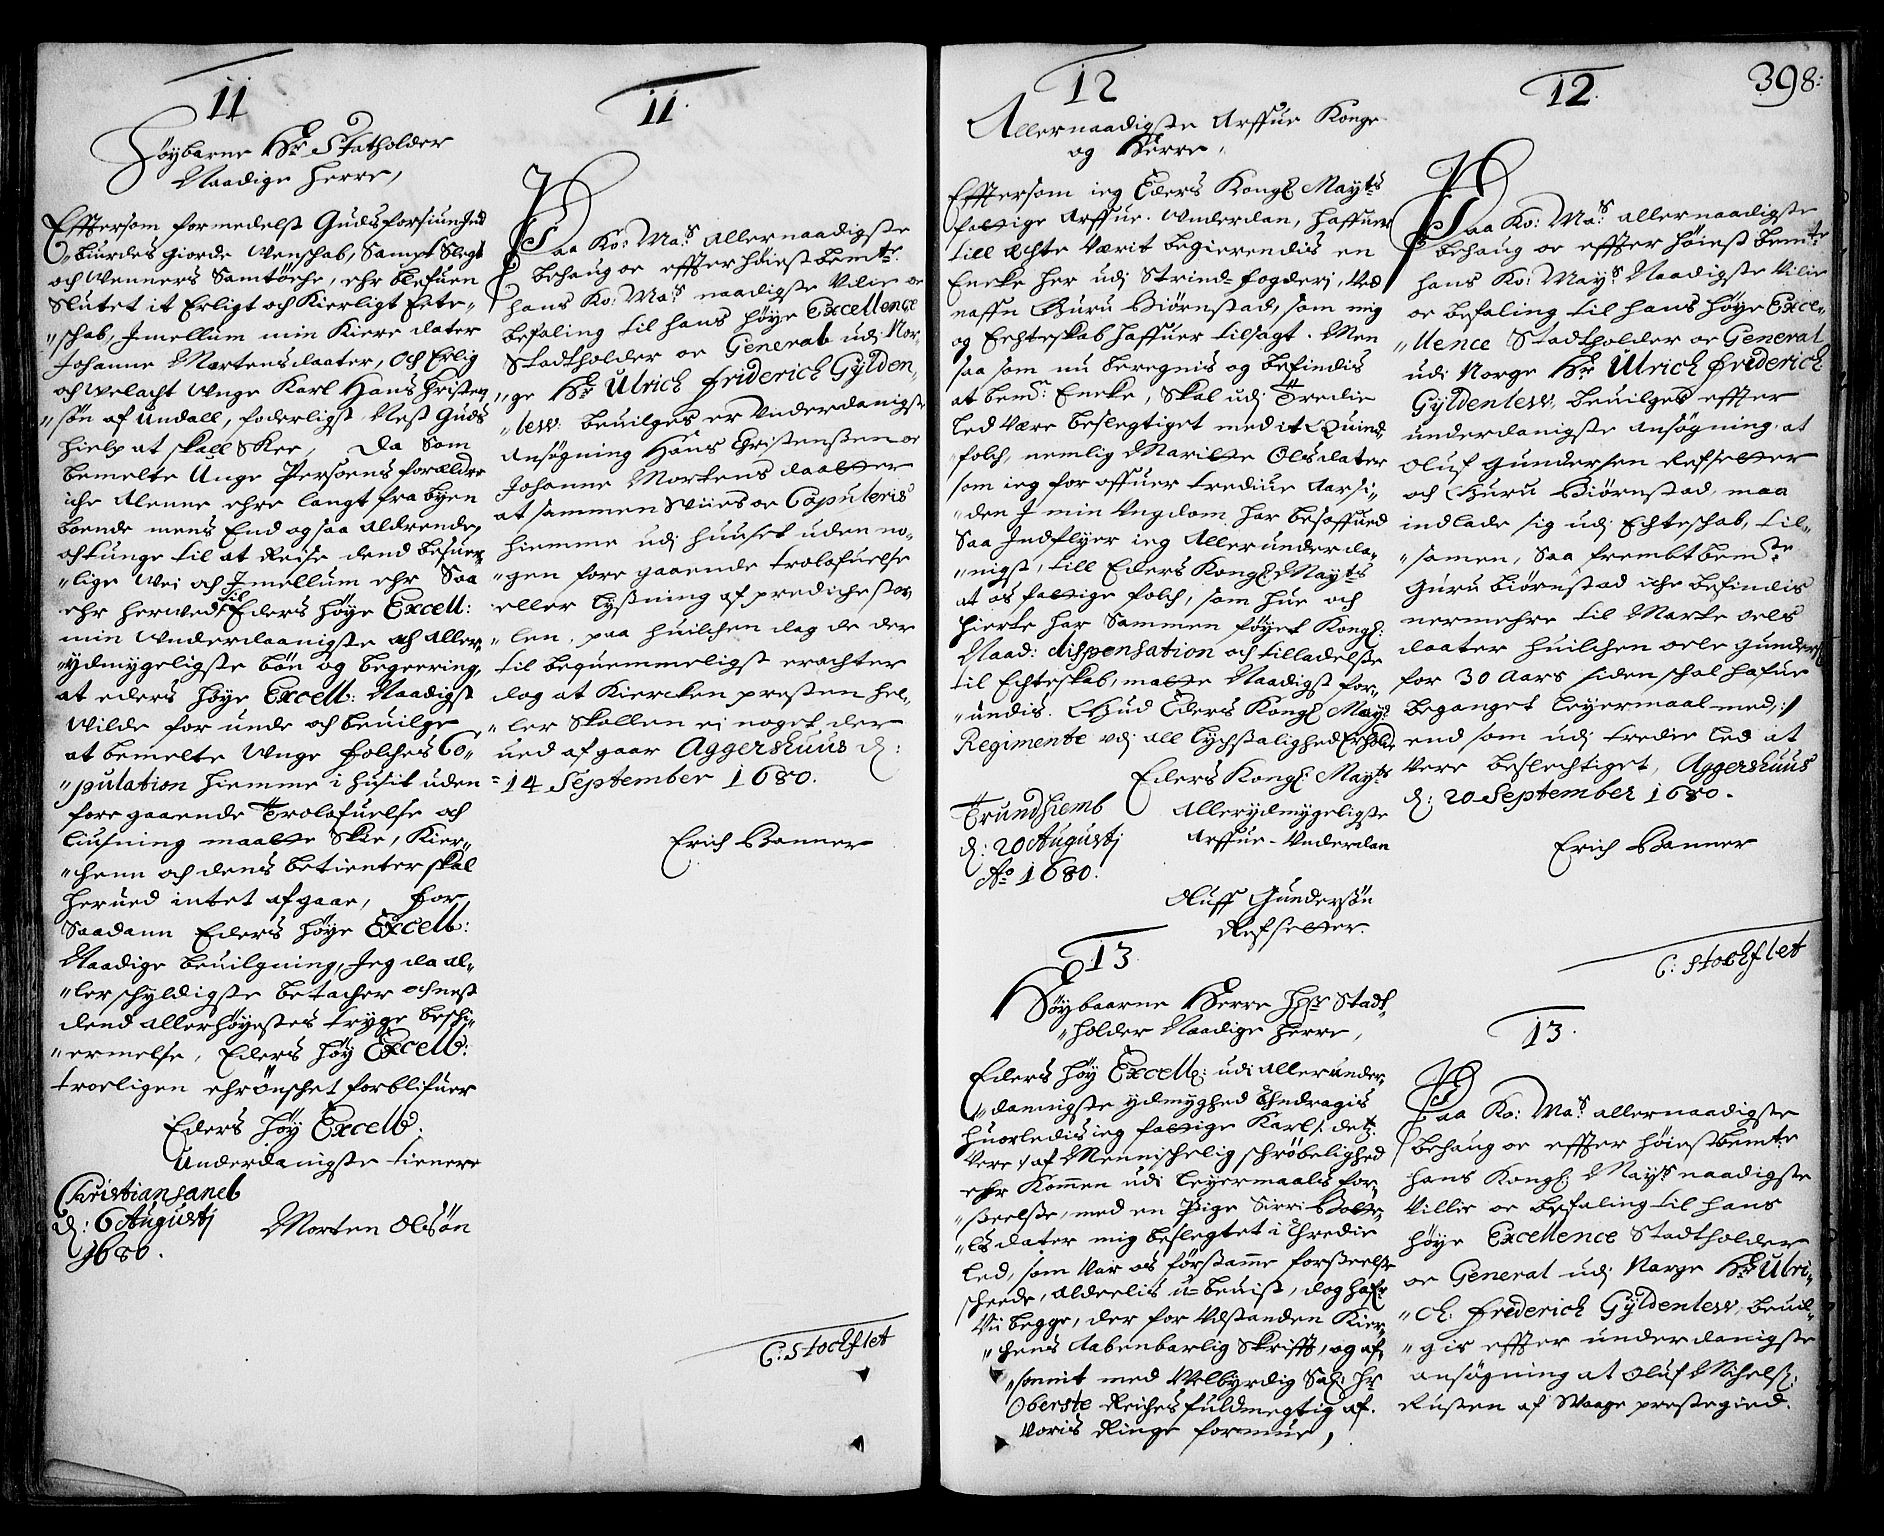 11
Høybarne Hr Statholder
Naadige Herre,
Efftersom formedelst Guds forsiunhed
burdes giorde Wenschab, Sampt Slegt
och Wenners Samtöche, ehr blefuen
Slutet it Erligt och Kierligt Ecte-
"schab, Imellum min Kiere dater
Johanne Mortensdaater, Och Erlig
och velacht Unge Karl Hans Christen
"søn af Undall, foderligst Nest Guds
hielp at skall Skee, Da Som
bemelte Unge Persoens forældre
iche Alenne ehre langt fra byen
boende mens End og saa Aldrende,
och tunge til at Reise dend besuer
"lige Wei och Imellum ehr Saa
ehr herved til Eders høye Excell:
min Underdaanigste och Aller
"ydmygeligste bøn og begeering,
at eders høye Excell: Naadigst
Wilde for unde och beuilge
at bemelte Unge folches Co-
"pulation hiemme i husit uden
fore gaaende Trolofuelse och
liusning maatte Skee, Kier-
"chenn och dens betienter skal
herued intet afgaae, for
Saadann Eders høye Excell:
Naadige beuilgning, Jeg da al-
"lerschyldigste betacher och nest
dend Allerhøyestes trygge beschi-
"ermelse, Eders høy Excell:
troeligen ehr önschet forblifuer
Eders høy Excell:
Underdanigste tienere
Christiansand
d: 6 Augustj
1680.
Morten Olsøn
11.
Paa Ko: Mas Allernaadigste
behaug oc effter høiestbemte
hans Ko: Mas naadigste Vilie oc
befaling til hans høye Excellence
Stadtholder oc General udj Nor-
"ge Hr Ulrich friderich Gylden-
"lew: beuilges er Underdanigste
Ansøgning Hans Christensen oc
Johanne Mortens daatter
at sammen Wiies oc Copuleris
hiemme udj huuset uden no-
"gen fore gaaende trolofuelse
eller lysning af predichestoe
"len, paa huilchen dag de der
til bequemmeligst erachter
dog at Kiercken presten hel-
"ler Skollen ei noget der
ued afgaar Aggershuus d:
14 September 1680.
Erich Banner
C: Stochflet
12
Allernaadigste Arffue Konge
og Herre,
Efftersom ieg Eders Kongl Mayts
fattige Arffue Underdan, haffuer
till Echte Værit begierendis en
Encke her udj Strind- fogderj, Ved
naffn Guru Biørnstad, som mig
og Echteskab haffuer tilsagt. Men
saa som nu beregnis og befindis
at bemte: Encke, Skal udj Tredie
led være beslegtiget med it Quind-
folch, nemlig Maritte Olsdater
som ieg for offuer trediue Aar si-
"den I min Ungdom har besoffued
Saa Indflyer ieg Allerunderda-
"nigst, till Eders Kongl: Mayts
at os fattige folch, som hue och
hierte har Sammen føyet Kongl:
Naad: dispensation och tilladelse
til Echteskab, matte Naadigst for-
"undis. Gud Eders Kongl Mays
Regimente udj all Lychsalighed Erhold
Eders Kongl: Mayts
Allerydmygeligste
Arffue-Underdan
Trundhiemb
d: 20 Augustj
Ao 1680.
Oluff Gundersøn
Refsetter.
13
Høybaarne Herre Hr Stadt-
"holder Naadige Herre,
Eders høy Excell: udi Allerunder-
"dannigste ydmyghed Andragis
huorledis ieg fattige Karl /: detz
Vere :/ af Menneschelig schrøbelighed
ehr Kommen udi Leyermaals for-
"seelse, med en Pige Sirri
"dater mig beslegtet i Thredie
led, som Var os førstamme forseelse
scheede, Alderlis u-beuist, dog hafr
Vii begge, der for Udstanden Kier-
"chens Aabenbarlig Skrifft, og af-
"sonnit med Velbyrdig Sal: Hr
Oberste Reiches fuldmegtig af
Voris Ringe formue,
12.
398:
Paa Ko: Mas: allernaadigste
behaug oc effter høiest bemte
hans Ko: Mays: Naadigste Vilie
oc befaling til hans høye Exce-
"llence Stadtholder oc General
udi Norge Hr Ulrich friderich
Gyldenlew, beuilges effter
underdanigste ansøgning at
Oluf Gundersen Refsetter
och Guru Biørnstad, maa
indlade sig udj Echteschab, til-
"samen, Saa frembt bemte
Guru Biørnstad iche befindis
nermehre til Marte Oels
daater huilchen Oele Gunders:
for 30 Aars siden schal hafue
beganget leyermaal med, :/
end som udj tredie led at
Vere beslechtiget, Aggershuus
d: 20 September 1680.
Erich Banner
C: Stochflet
13.
Paa Ko: Mas: allernaadigste
behaug oc effter høiestbemte
hans Kongl: Mayts naadigste
Villie oc befaling til hans
høye Excellence Stadtholder
oc General udj Norge Hr Ulri-
"ch friderich Gyldenlew, beuil-
"gis effter underdanigste
ansøgning at Oluf Michels:
Rusten af Waage prestegield